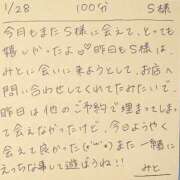 1/28 100分 S様
今日もまたS様に会えて、とっても
嬉しかったよ♡昨日もS様は、
みとに会いに来ようとして、お店へ
問い合わせしてくれてたみたいで、
昨日は他のご予約で埋まってしまっ
て会えなかったけど、今日ようやく
会えて良かった(o^^o)また一緒に
えっちな事して遊ぼうね!!
みと